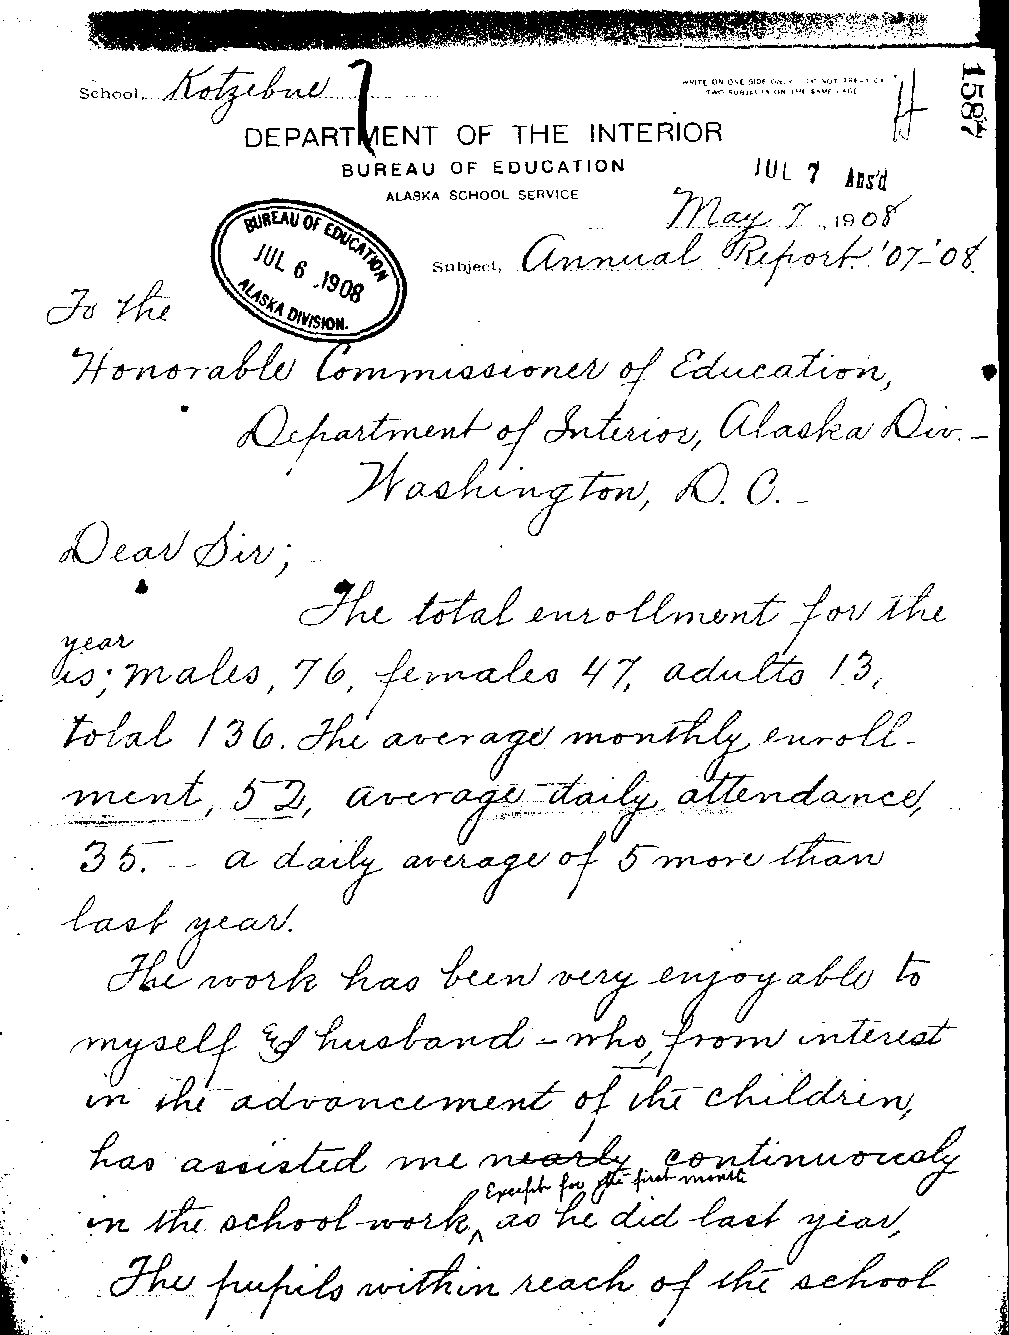 School, Kotzebue
WRITE ON ONE SIDE ONLY. DO NOT TREAT OF
TWO SUBJECTS ON THE SAME PAGE
1587
DEPARTMENT OF THE INTERIOR
BUREAU OF EDUCATION
ALASKA SCHOOL SERVICE
JUL 7 Ans'd
May 7, 1908
Subject, Annual Report. '07-'08.
BUREAU OF EDUCATION
JUL 6 1908
ALASKA DIVISION.
To the
Honorable Commissioner of Education,
Department of Interior, Alaska Div. -
Washington, D. C. -
Dear Sir;
The total enrollment for the
year
is; males, 76, females 47, adults 13,
total 136. The average monthly enroll-
ment, 52, average daily attendance,
35. - a daily average of 5 more than
last year.
The work has been very enjoyable to
myself & husband - who, from interest
in the advancement of the children,
has assisted me nearly continuously
Except for the first month
in the school-work, as he did last year,
The pupils within reach of the school